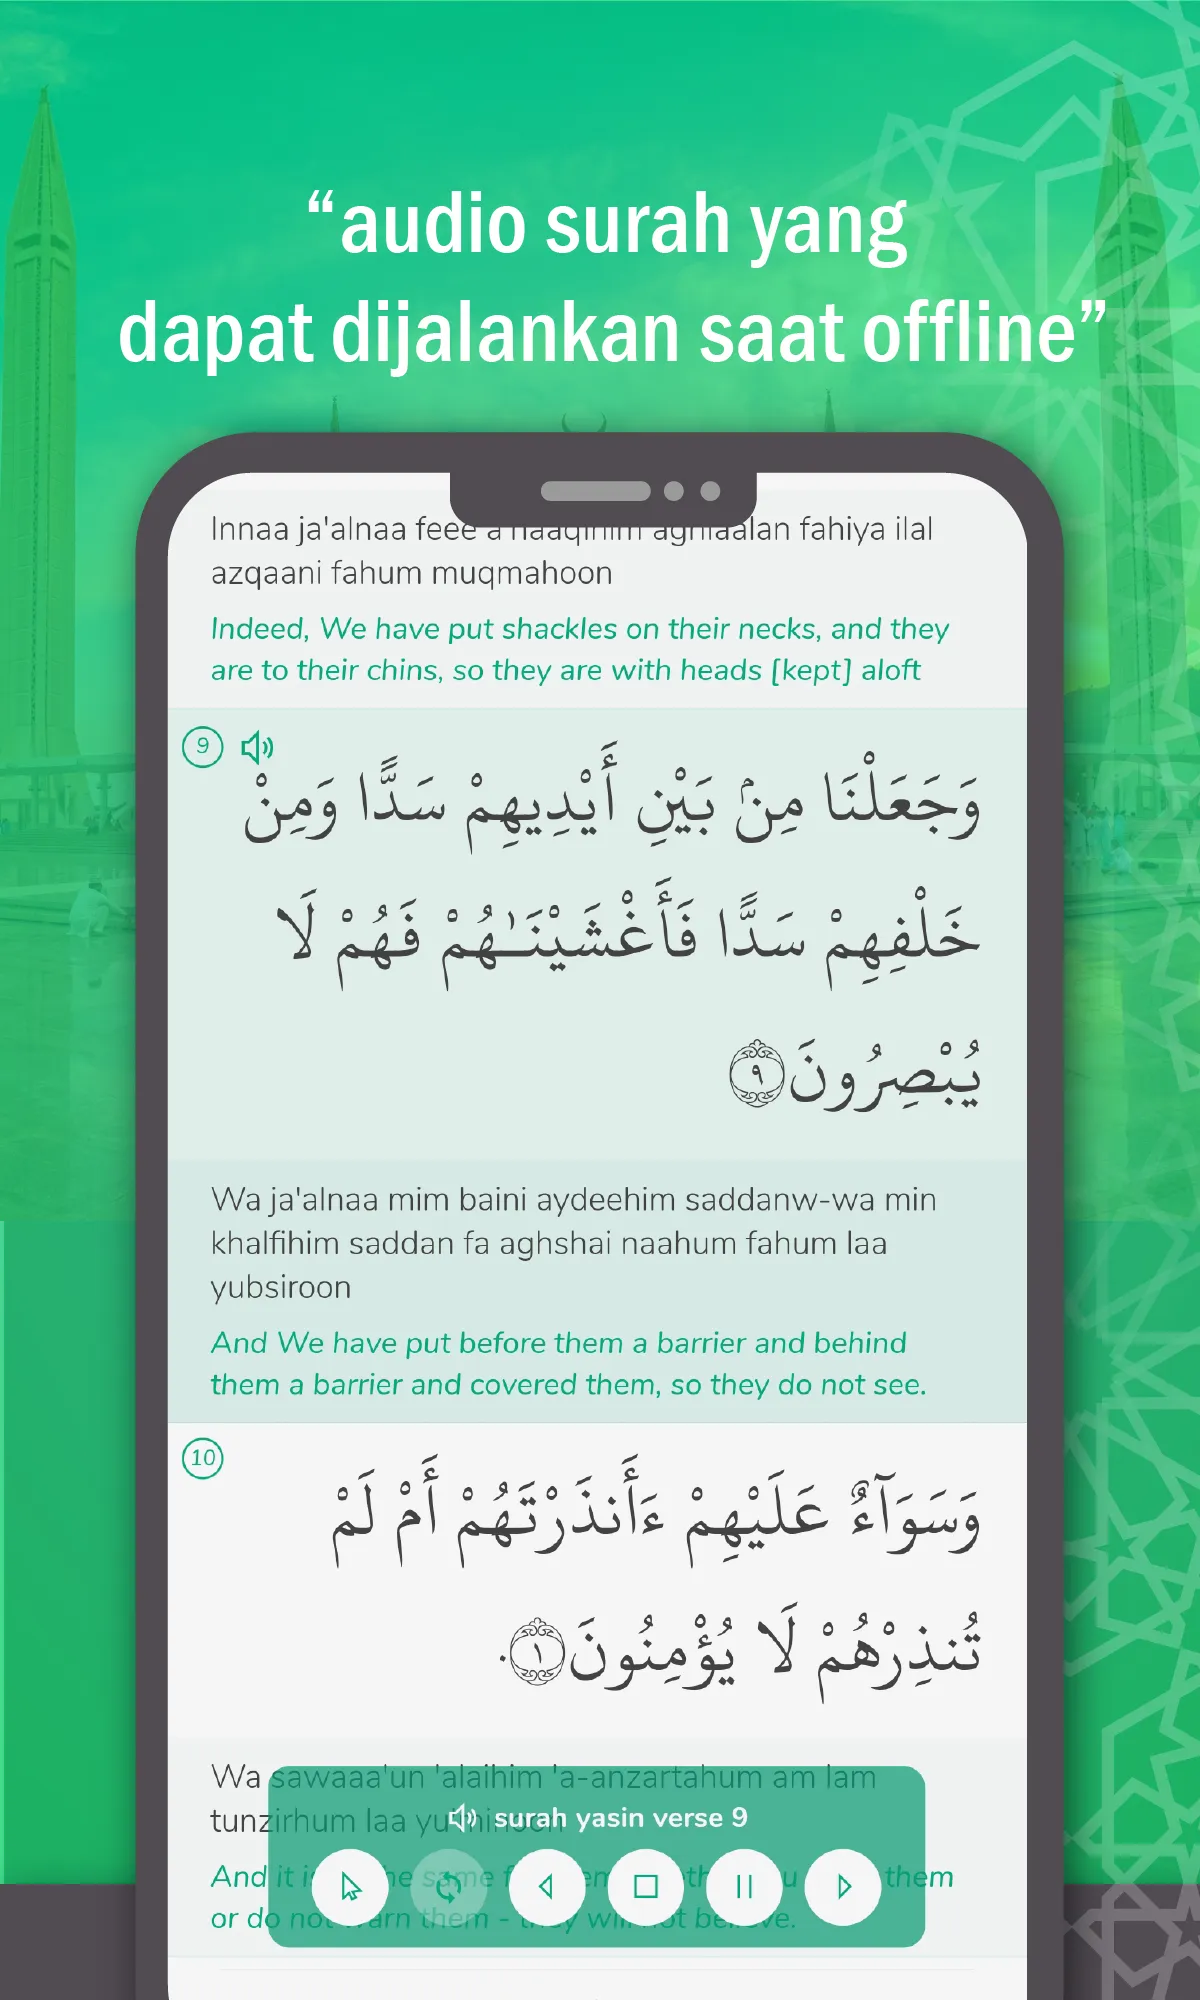 “audio surah yang
dapat dijalankan saat offline”
Innaa ja'alnaa feee aghlaalan fahiya ilal
azqaani fahum muqmahoon
Indeed, We have put shackles on their necks, and they
are to their chins, so they are with heads [kept] aloft
9
وَجَعَلْنَا مِنۢ بَيْنِ أَيْدِيهِمْ سَدًّا وَمِنْ
خَلْفِهِمْ سَدًّا فَأَغْشَيْنَـٰهُمْ فَهُمْ لَا
يُبْصِرُونَ ٩
Wa ja'alnaa mim baini aydeehim saddanw-wa min
khalfihim saddan fa aghshai naahum fahum laa
yubsiroon
And We have put before them a barrier and behind
them a barrier and covered them, so they do not see.
10
وَسَوَآءٌ عَلَيْهِمْ ءَأَنذَرْتَهُمْ أَمْ لَمْ
تُنذِرْهُمْ لَا يُؤْمِنُونَ ١٠
Wa sawaaa'un 'alaihim 'a-anzartahum am lam
tunzirhum laa
surah yasin verse 9
And it same them
or do not warn them - they will not believe.